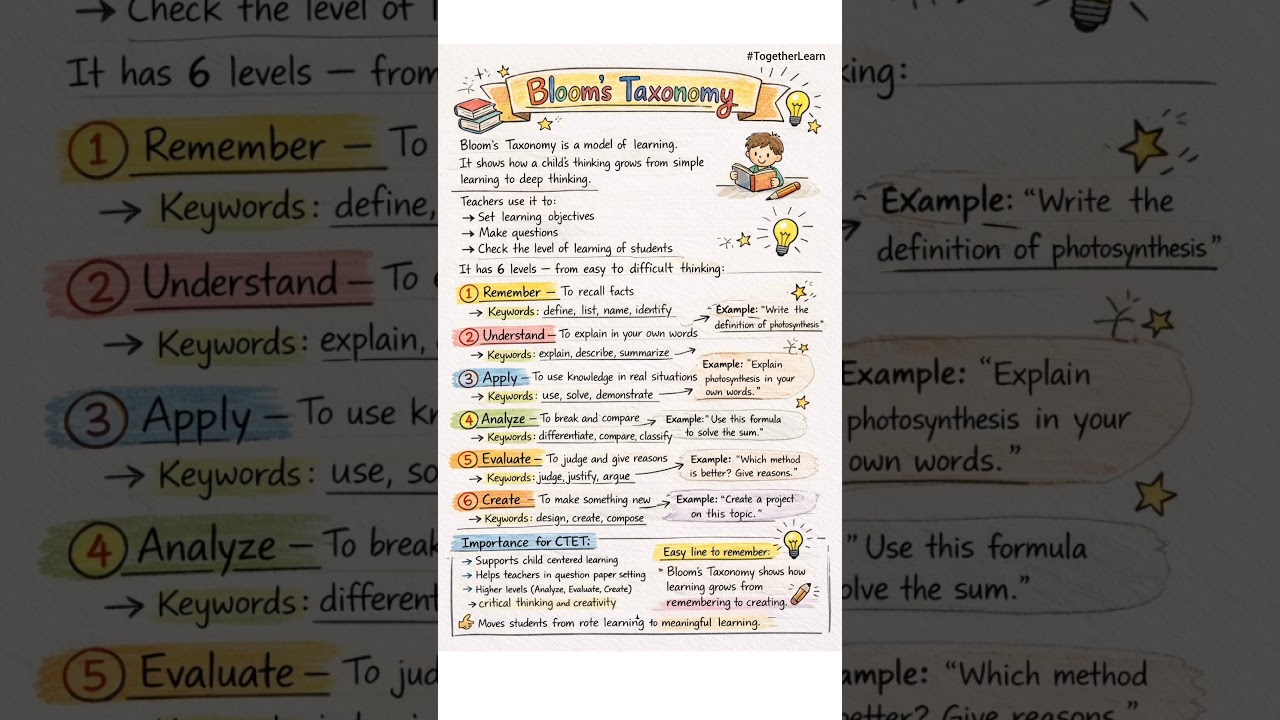 #TogetherLearn
Bloom's Taxonomy
Bloom's Taxonomy is a model of learning.
It shows how a child's thinking grows from simple
learning to deep thinking.
Teachers use it to:
→ Set learning objectives
→ Make questions
→ Check the level of learning of students
It has 6 levels – from easy to difficult thinking:
1 Remember – To recall facts
→ Keywords: define, list, name, identify
Example: "Write the
definition of photosynthesis"
2 Understand – To explain in your own words
→ Keywords: explain, describe, summarize
Example: "Explain
photosynthesis in your
own words."
3 Apply – To use knowledge in real situations
→ Keywords: use, solve, demonstrate
4 Analyze – To break and compare
→ Keywords: differentiate, compare, classify
Example: "Use this formula
to solve the sum."
5 Evaluate – To judge and give reasons
→ Keywords: judge, justify, argue
Example: "Which method
is better? Give reasons."
6 Create – To make something new
→ Keywords: design, create, compose
Example: "Create a project
on this topic."
Importance for CTET:
→ Supports child centered learning
→ Helps teachers in question paper setting
→ Higher levels (Analyze, Evaluate, Create)
→ critical thinking and creativity
Moves students from rote learning to meaningful learning.
Easy line to remember:
" Bloom's Taxonomy shows how
learning grows from
remembering to creating.
→ Check the level of l
It has 6 levels – from
1 Remember – To
→ Keywords: define,
2 Understand – To
→ Keywords: explain,
3 Apply – To use kn
→ Keywords: use, so
4 Analyze – To break
→ Keywords: different
5 Evaluate – To jud
king:
Example: "Write the
definition of photosynthesis"
Example: "Explain
photosynthesis in your
own words."
"Use this formula
olve the sum."
ample: "Which method
better? Give reasons."